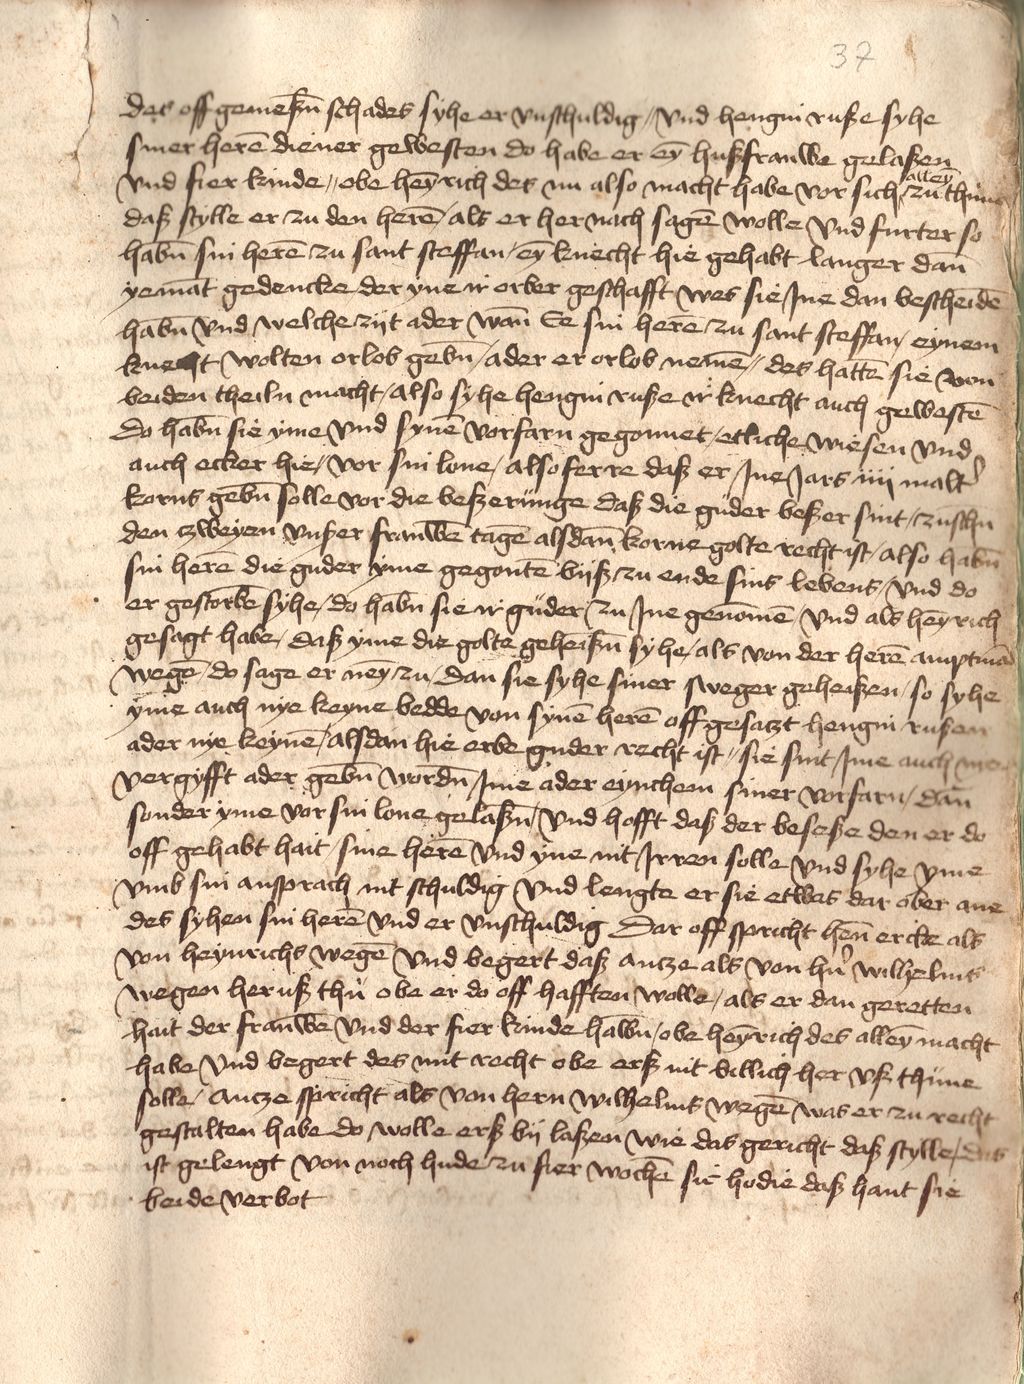 37
des off gemeßn̄ schades syhe er vnschuldig // vnd hengin ruße syhe
siner herē diener gewesten do habe er eȳ hußfrauwe gelaßen
alleȳ
vnd fier kinde // obe heȳrich des nu also macht habe vor sich zu thūne
daß stylle er zu den herē / als er her nach sagē wolle vnd furter so
habn̄ sin herē zu sant steffan / eȳ knecht hie gehabt langer dan̄
yemāt gedencke der yne ir erber geschafft wes sie Ine dan bescheidē
habn̄ vnd welche zijt ader wan̄ Ee sin herē zu sant steffan eynem
knecht wolten orlob gebn̄ / ader er orlob nemē // des hattē sie von
beiden theiln macht / also syhe hengin ruße ir knecht auch gewestē
Do habn̄ sie yme vnd synē vorfarn gegonnet / etliche wiesen vnd
auch ecker hie / vor sin lone / also ferre daß er / Ine Jars iiij malt'
korns gebn̄ solle vor die beßerūnge daß die guder beßer sint / zuschn
den zweyen vnßer frauwē tagē alsdan̄ korne golte recht ist / also habn̄
sin herē die guder yme gegontē bijß zu ende sins lebens / vnd do
er gestorbē syhe / do habn̄ sie ir guder zu Ine genomē vnd als heȳrich
gesagt habe / daß yme die golte geheißn̄ syhe / als von der herē amptmā
wegē / do sage er neȳ zu / dan sie syhe siner sweger geheißen / so syhe
yme auch nye keyne bedde von synē herē off gesatzt hengin rußen
ader nye keynē / alsdan hie erbe guder recht ist // sie sint Ine auch
vergyfft ader gebn̄ wordn̄ / Ine ader eynchem siner vorfarn / dan̄
sonder yme vor sin lone gelaßn̄ / vnd hofft daß der beseße den er do
off gehabt hait / sine herē vnd yne nit Irren solle vnd syhe yme
vmb sin ansprach nit schuldig vnd lengte er sie etwas dar ober ane
des syhen sin herē vnd er vnschuldig Dar off spricht hen̄ ercke als
von heynrichs wegē vnd begert daß antze als von hn̄ wilhelms
wegen heruß thu obe er do off hafften wolle / als er dan geretten
hait der frauwē vnd der fier kinde habn̄ / obe heȳrich des alleȳ macht
habe vnd begert des mit recht obe erß nit billich her vß thūne
solle / Antze spricht als von hern wilhelms wegē was er zu recht
gestalten habe do wolle erß bij laßen wie das gericht daß stylle / das
ist gelengt von noch hude zu fier wochē sic hodie daß hant sie
beide verbot